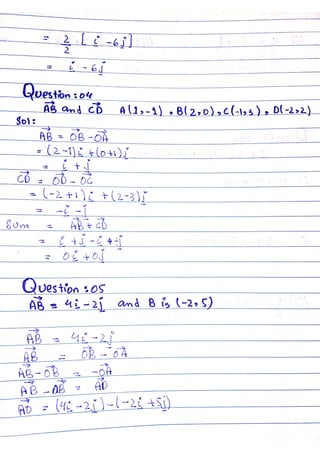 = 2/2 [ i - 6j ]
= i - 6j
Question : 04
AB and CD A(1,-1) , B(2,0) , C(-1,3) , D(-2,2)
Sol:
AB = OB - OA
= (2-1)i + (0+1)j
= i + j
CD = OD - OC
= (-2+1)i + (2-3)j
= -i - j
Sum = AB + CD
= i + j - i + j
= 0i + 0j
Question : 05
AB = 4i - 2j and B is (-2,5)
AB = 4i - 2j
AB = OB - OA
AB - OB = -OA
AB - OB = AO
AO = (4i - 2j) - (-2i + 5j)